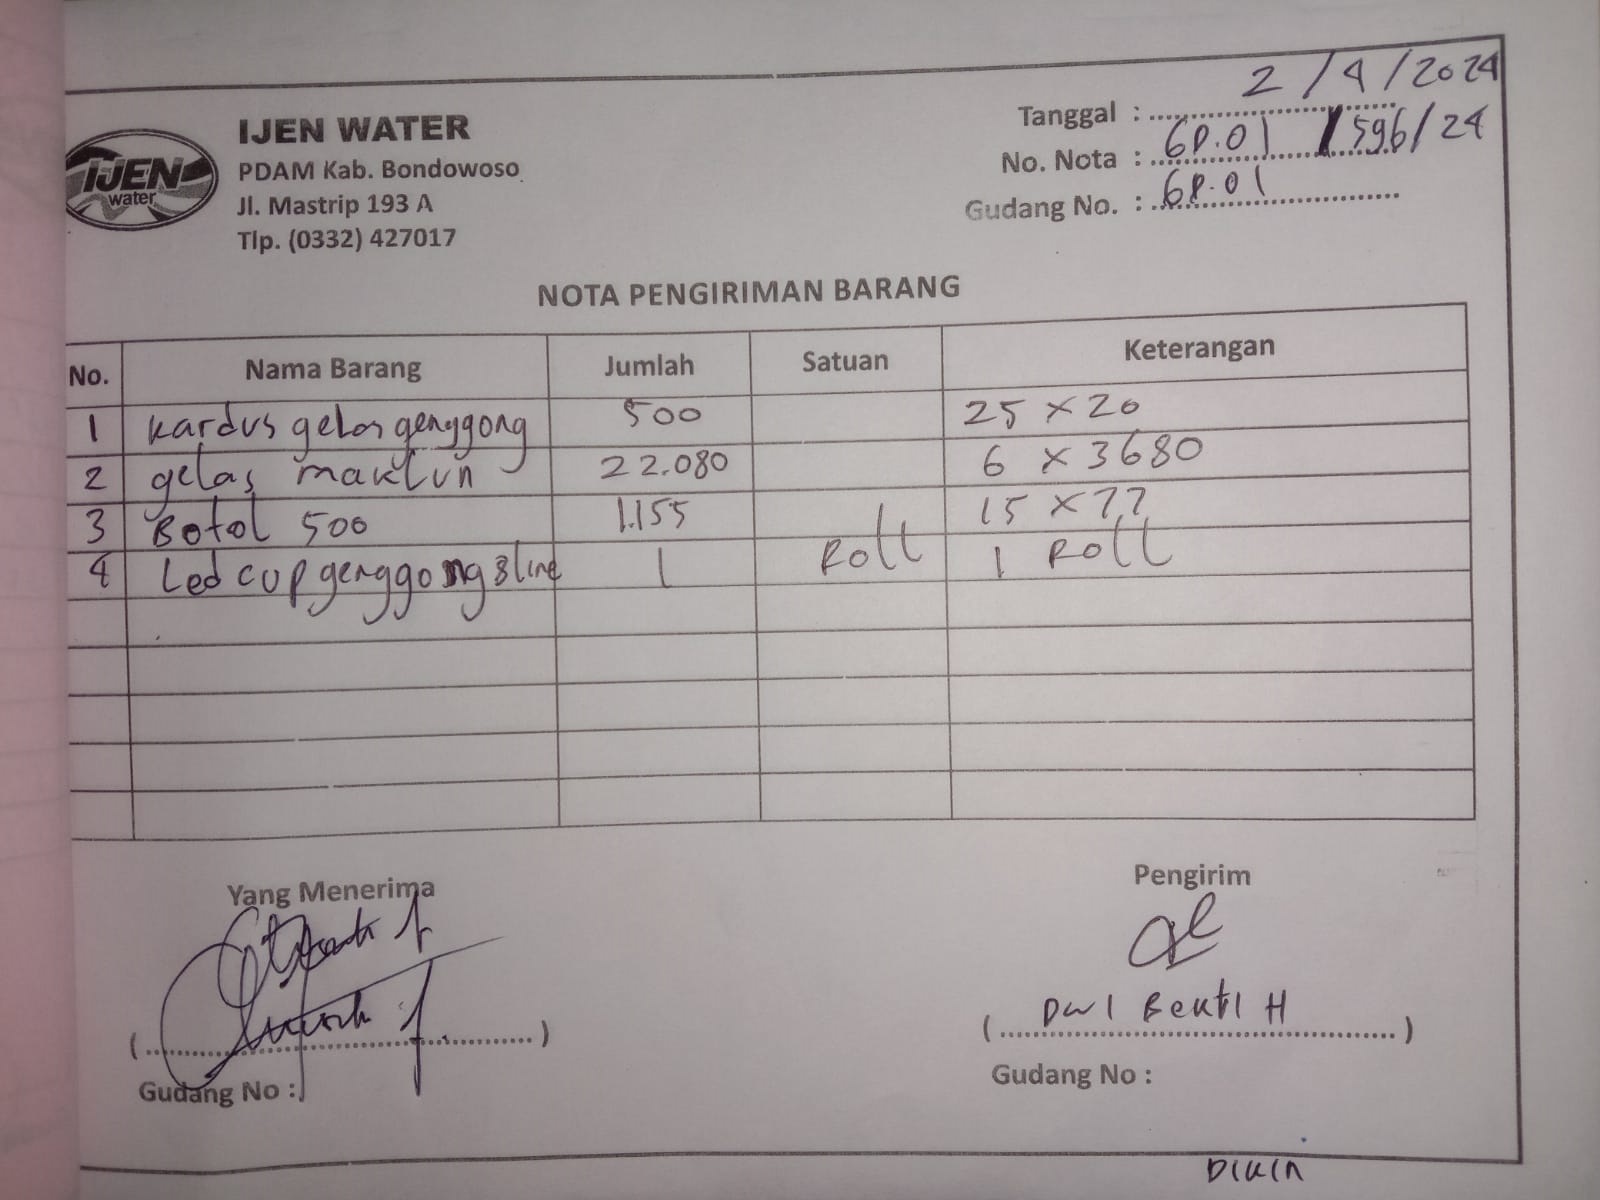 IJEN
water
IJEN WATER
PDAM Kab. Bondowoso
Jl. Mastrip 193 A
Tlp. (0332) 427017
Tanggal : 2/4/2024
No. Nota : GP.01 /596/24
Gudang No. : GP.01
NOTA PENGIRIMAN BARANG
No. Nama Barang Jumlah Satuan Keterangan
1 kardus gelas genggong 500 25 x 20
2 gelas maklun 22.080 6 x 3680
3 Botol 500 1.155 15 x 77
4 Led cup genggong 3 line 1 Roll 1 Roll
Yang Menerima
Pengirim
( )
( Dwi Bekti H )
Gudang No :
Gudang No :
DIKIN